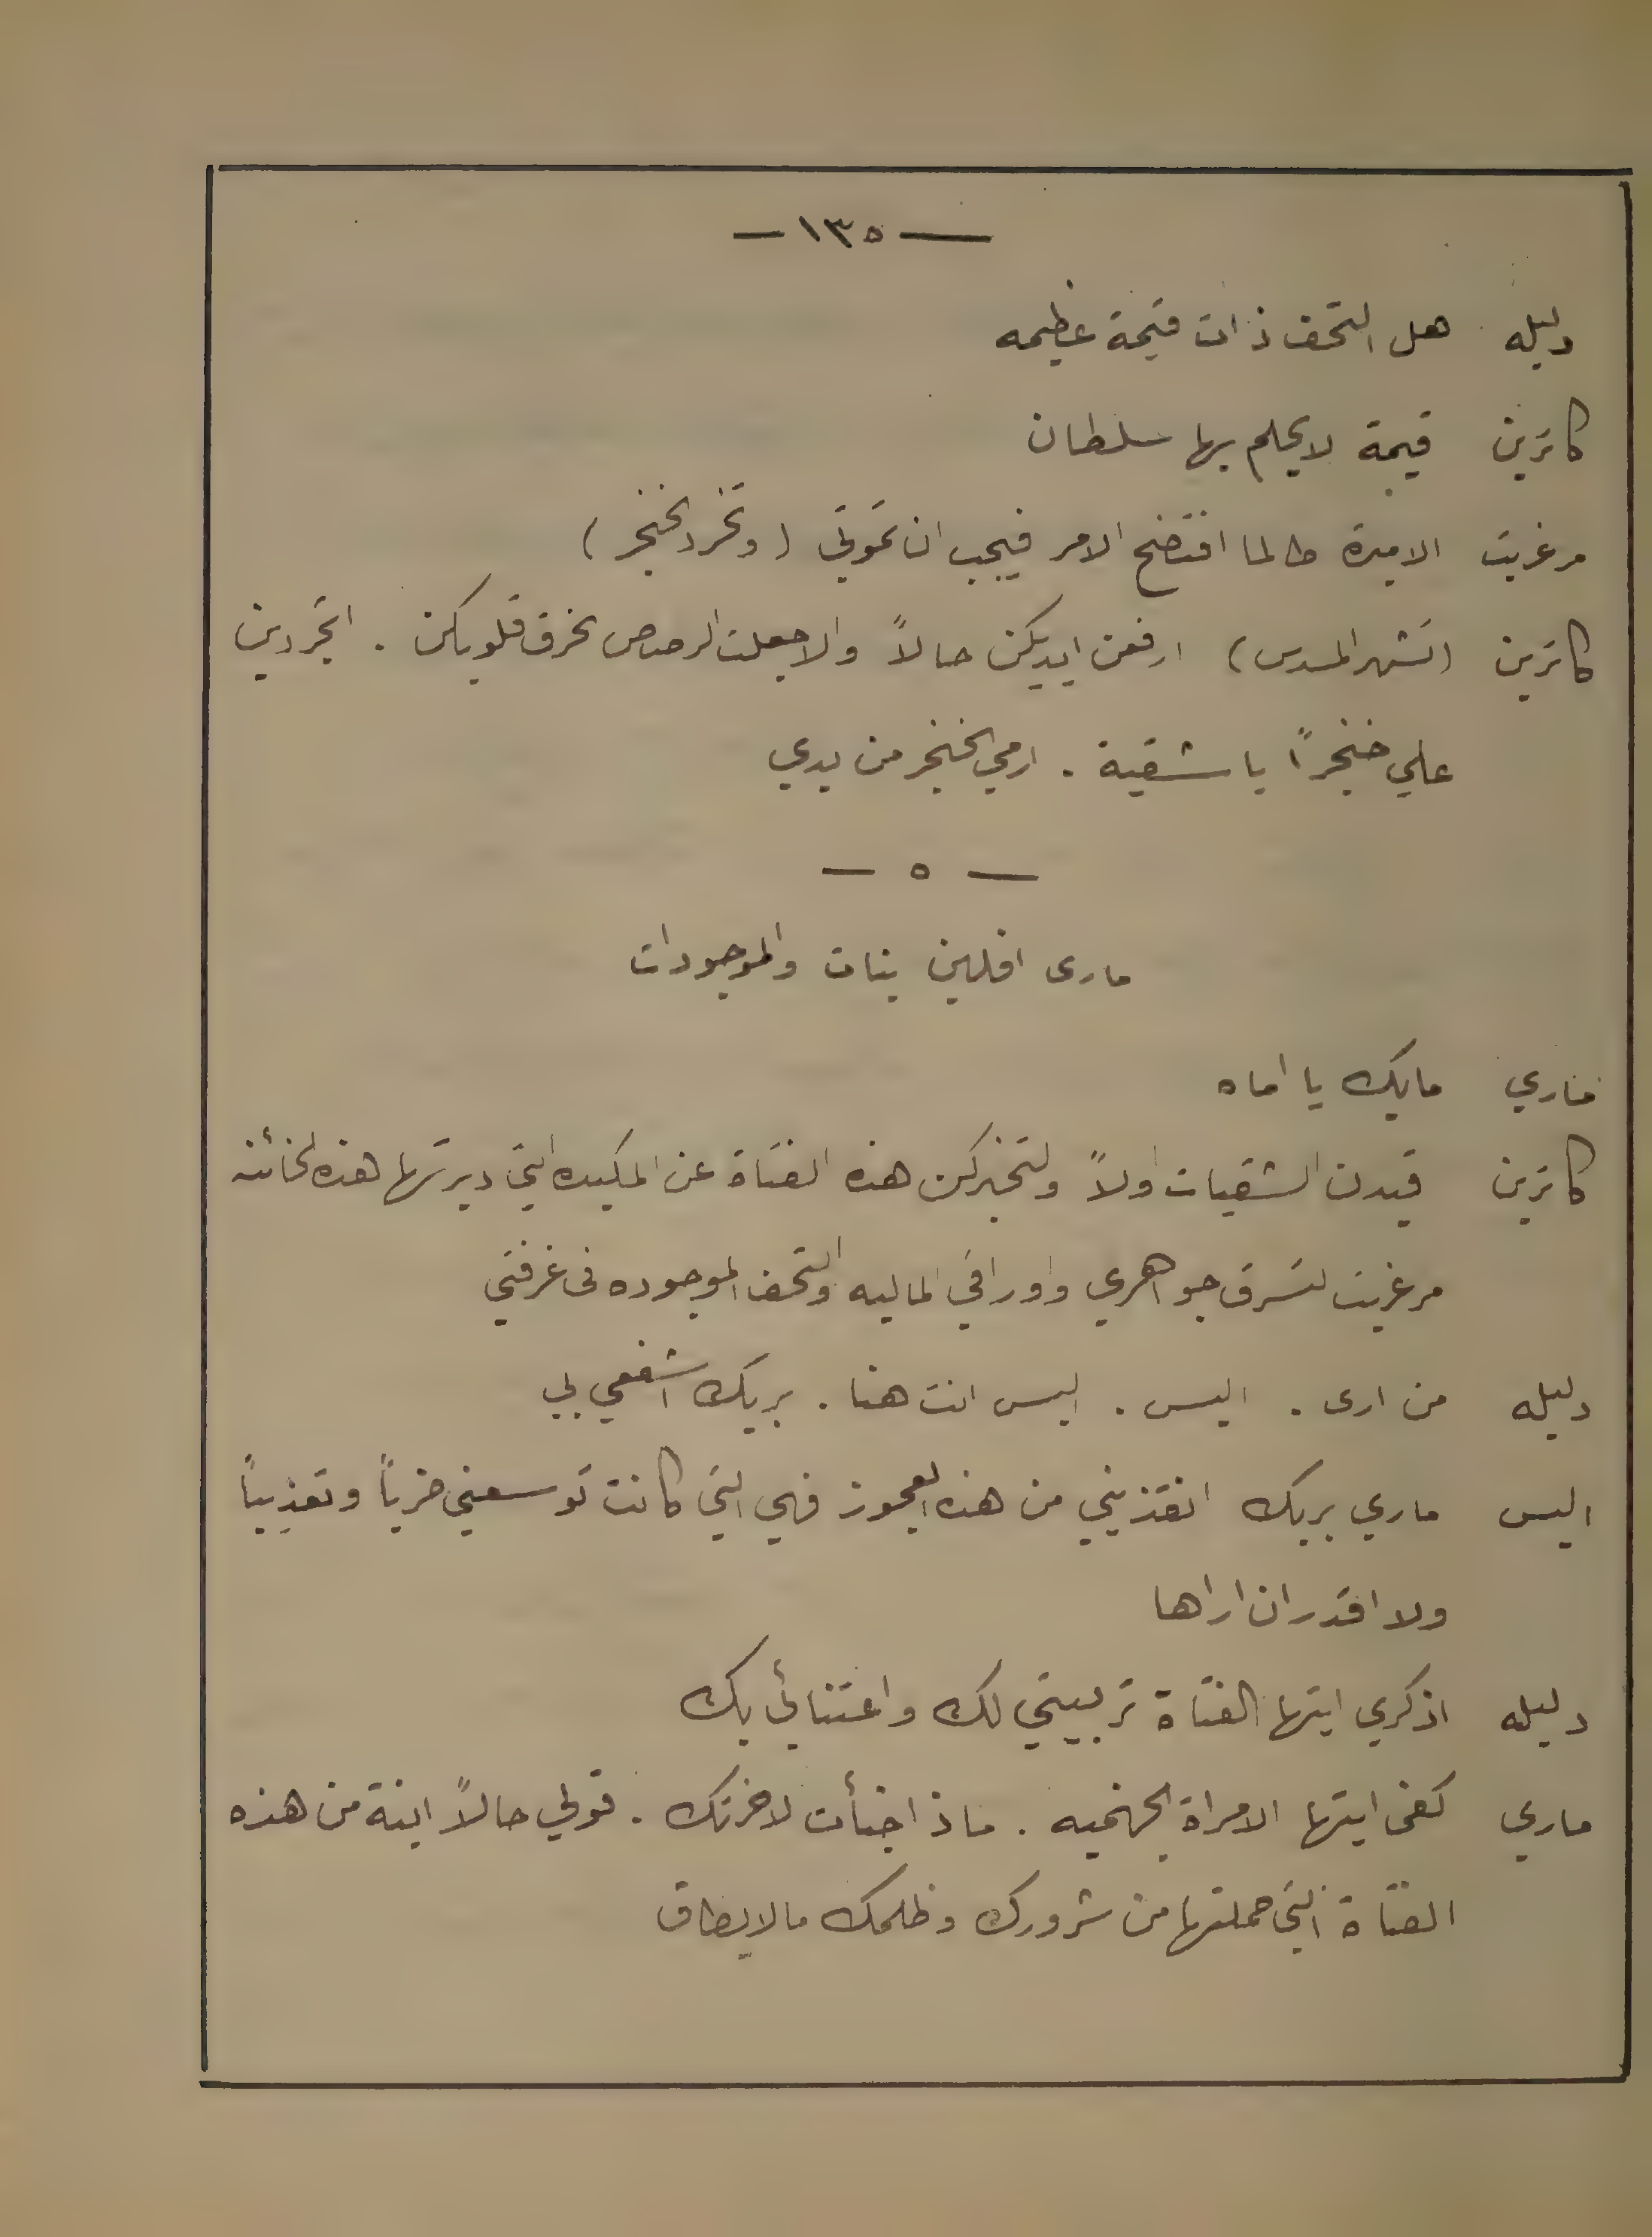 — ١٣٥ —
دليله هل التحف ذات قيمة عظيمه
كاترين قيمة لا يحلم بها سلطان
مرغريت الاميرة طالما افتضح الامر فيجب ان تموتي (وتجرد الخنجر)
كاترين (تشهر المسدس) ارفعن ايديكن حالاً والا جعلت الرصاص يخرق قلوبكن . اتجردين
علي خنجراً يا شقية . ارمي الخنجر من يدي
— ٥ —
مارى افلين بنات والموجودات
ماري مابك يا اماه
كاترين قيدن الشقيات اولاً ولتخبركن هذه الفتاة عن المكيده التي دبرتها هذه الخائنه
مرغريت لتسرق جواهري واوراقي الماليه والتحف الموجوده فى غرفتي
دليله من ارى . اليس . اليس انت هنا . بربك اشفعي بي
اليس ماري بربك انقذيني من هذه العجوز فهي التي كانت توسعني ضرباً وتعذيباً
ولا اقدر ان اراها
دليله اذكري ايتها الفتاة تربيتي لك واعتنائي بك
ماري كفى ايتها الامراة الجهنميه . ماذا خبأت لاخرتك . قولي حالاً ابنة من هذه
الفتاة التي حملتها من شرورك وظلمك مالا يطاق